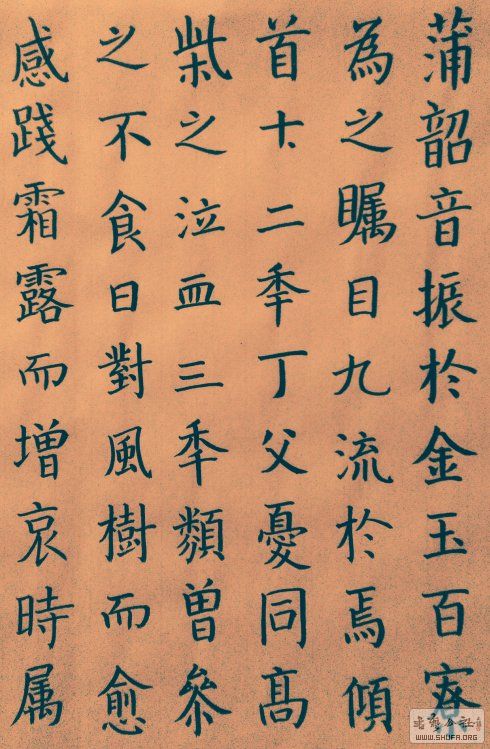 蒲韶音振於金玉百家
為之矚目九流於焉傾
首十二秊丁父憂同高
柴之泣血三秊類曾參
之不食日對風樹而愈
感踐霜露而增哀時属
WWW.SHUFA.ORG